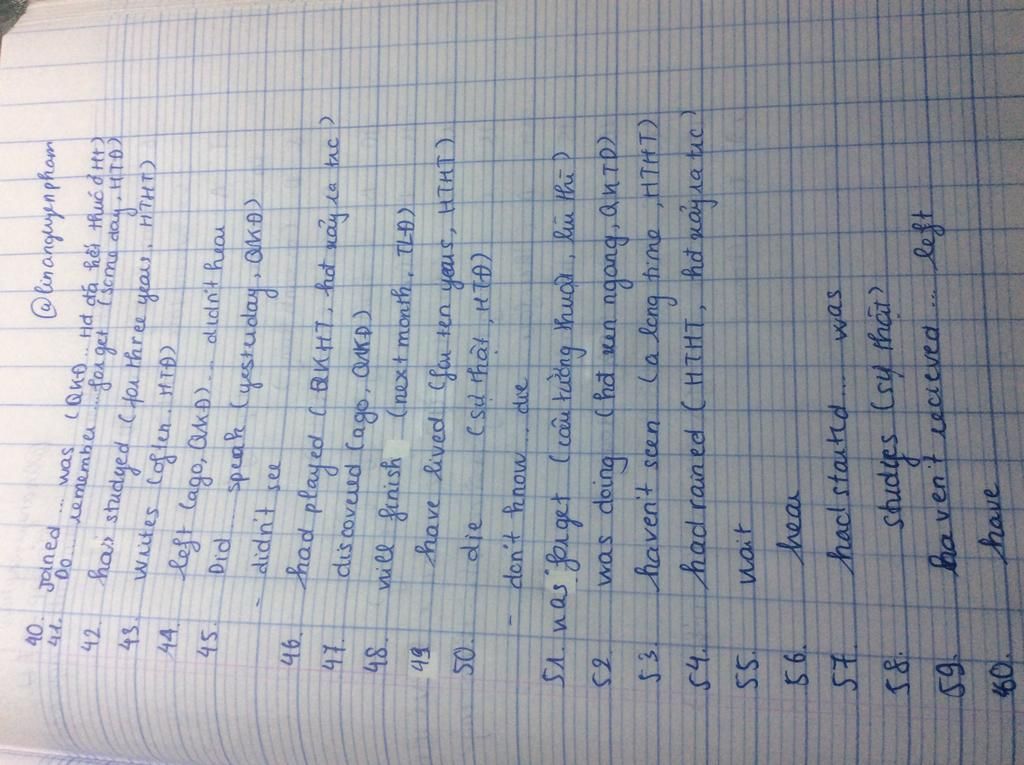 @linanguyenpham
40. Joined ... was (QKĐ ... Hđ đã kết thúc ở Ht)
41. Do ... remember ... forget (some day, HTĐ)
42. has studyed (for three years, HTHT)
43. writes (often. HTĐ)
44. left (ago, QKĐ) ... didn't hear
45. Did ... speak (yesterday, QKĐ)
- didn't see
46. had played (QKHT, hđ xảy ra trc)
47. discovered (ago, QKĐ)
48. will finish (next month, TLĐ)
49 have lived (for ten years, HTHT)
50. die (sự thật, HTĐ)
- don't know ... die
51. was forget (câu tường thuật, lùi thì)
52. was doing (hđ xen ngang, QKTD)
53. haven't seen (a long time, HTHT)
54. had rained (HTHT, hđ xảy ra trc)
55. wait
56. hear
57. had started ... was
58. studyes (sự thật)
59. haven't recieved ... left
60. have